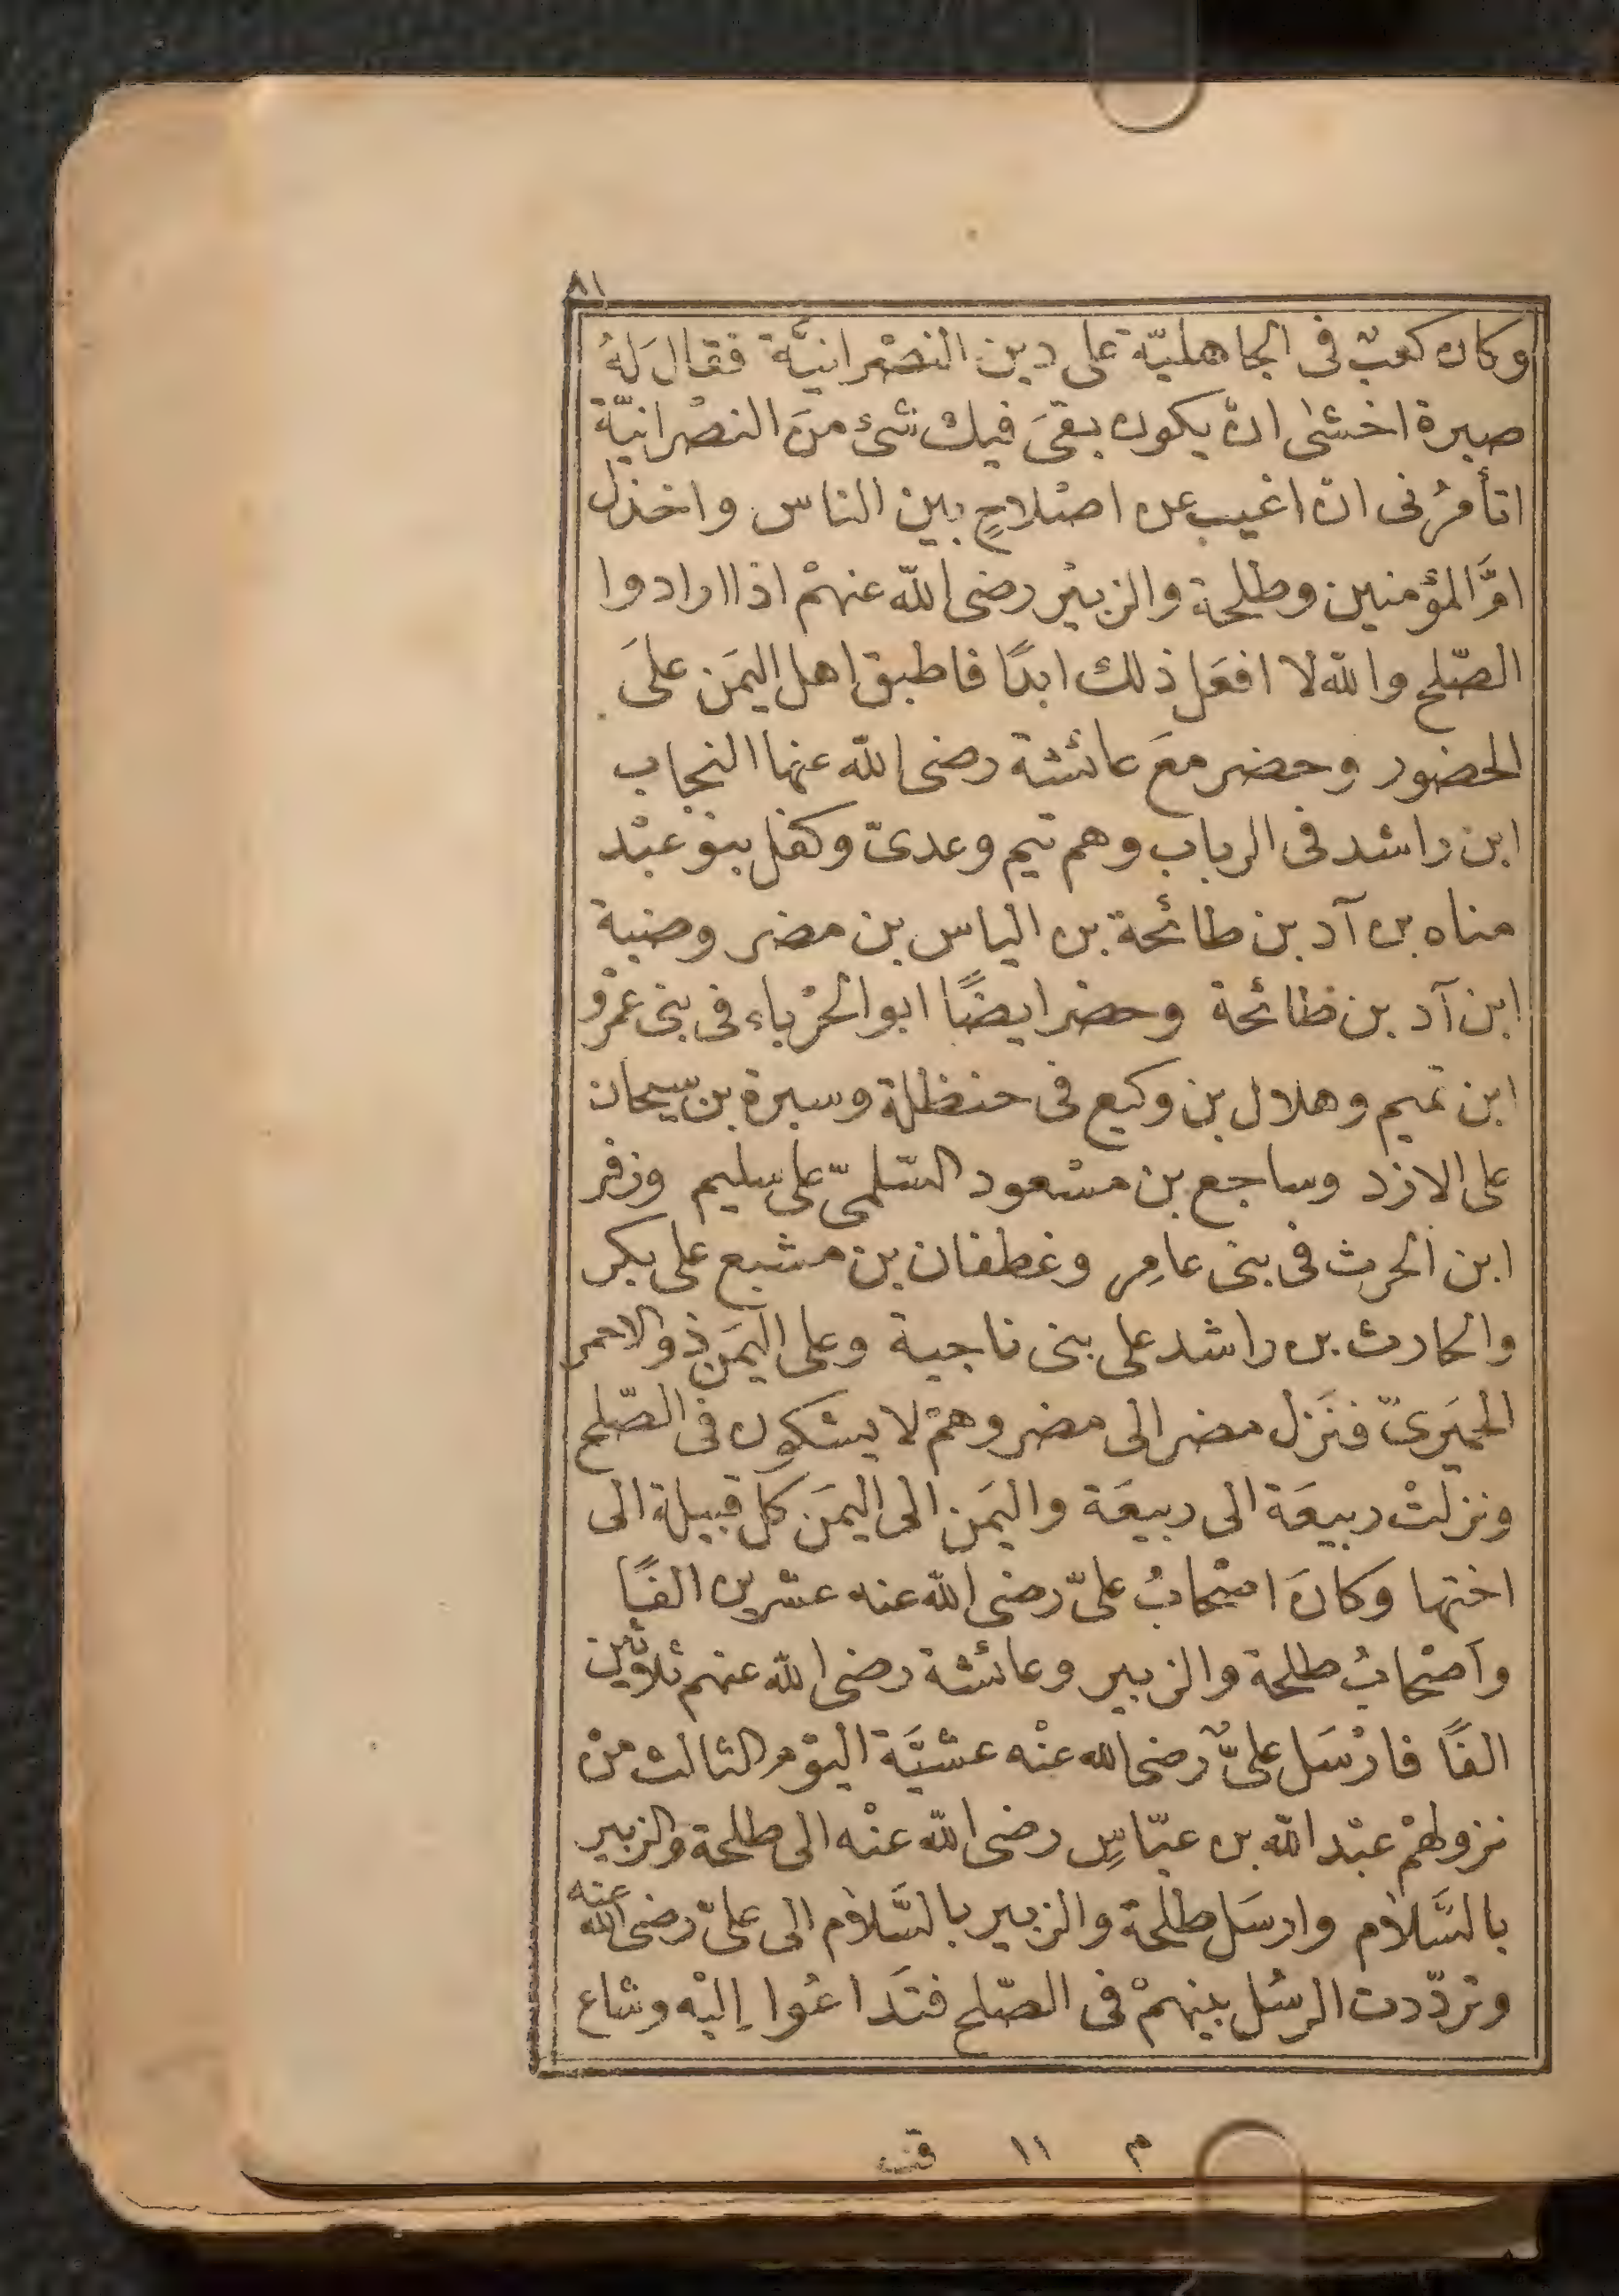 ٨١
وكان كعبٌ فى الجاهليّة على دين النصْرانيَّة فقالَ لهُ
صبرة اخشى انْ يكون بقىَ فيك شئ منَ النصْرانيّة
اتأمرُنى انْ اغيب عن اصْلاحٍ بين الناس واخذل
امَّ المؤمنين وطلحة والزبيْر رضى الله عنهمْ اذا ارادوا
الصّلح والله لا افعَل ذلك ابدًا فاطبق اهل اليمَن علىَ
الحضور وحضر معَ عائشة رضى الله عنها النجاب
ابن راشد فى الرباب وهم تيم وعدىّ وكفل بنو عبْد
مناه بن آد بن طائحة بن الياس بن مضر وضبة
ابن آد بن ظائحة وحضر ايضًا ابو الحرْباء فى بنى عمْرو
ابن تميم وهلال بن وكيع فى حنظلة وسبرة بن سيحان
على الازد وساجع بن مسْعود السّلمىّ على سليم وزفر
ابن الحرث فى بنى عامِر وغطفان بن مشبع على بكر
والحارث بن راشد على بنى ناجية وعلى اليمَن ذوالاحمر
الحميَرىّ فنَزل مضر الى مضر وهمْ لا يشكون فى الصّلح
ونزلتْ ربيعَة الى ربيعَة واليمَن الى اليمَن كل قبيلة الى
اختها وكانَ اصْحابُ علىّ رضى الله عنه عشرين الفًا
واَصْحابُ طلحة والزبير وعائشة رضى الله عنهم ثلاثين
الفًا فارْسَل علىٌّ رضى الله عنْه عشيَّة اليوْم الثالث منْ
نزولهمْ عبْد الله بن عبّاسٍ رضى الله عنْه الى طلحة والزبير
بالسَّلام وارسَل طلحة والزبير بالسَّلام الى علىّ رضى الله عنه
وتردّدت الرسُل بينهمْ فى الصّلح فتَداعُوا اِليْه وشاع
م ١١ قت